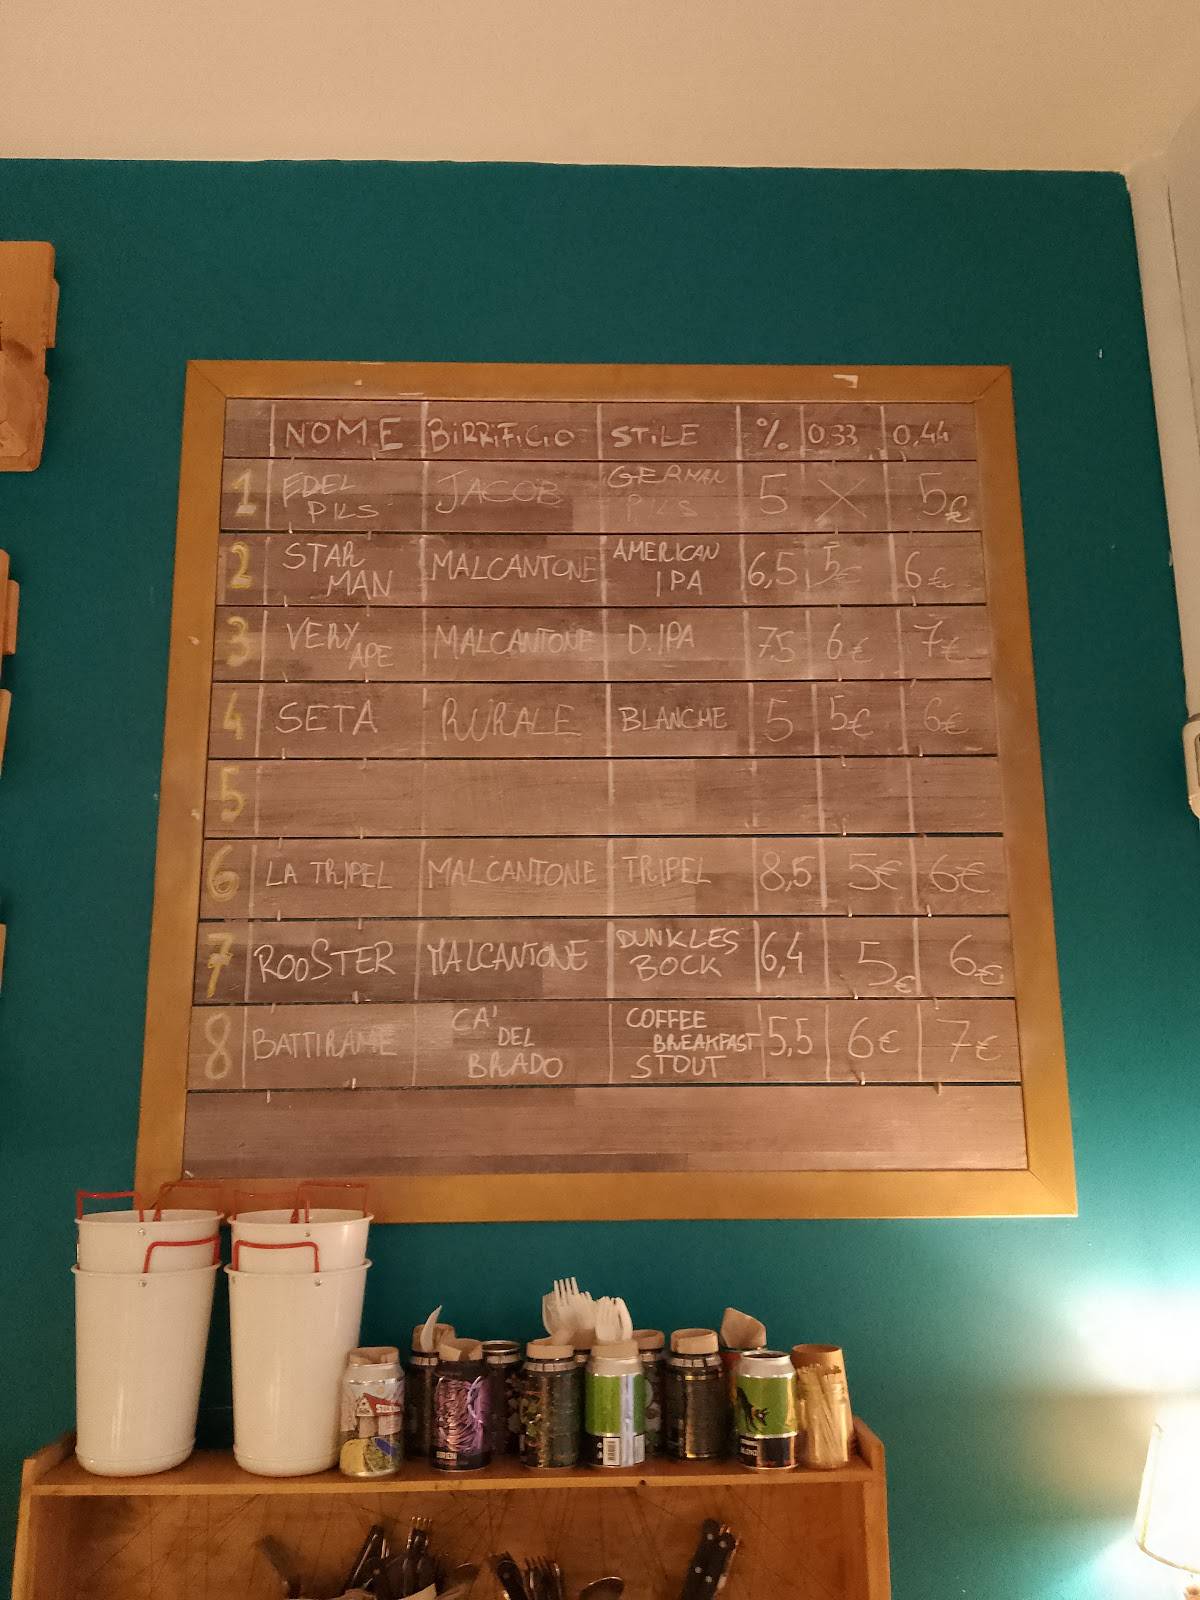 NOME BIRRIFICIO STILE % 0,33 0,44
1 EDEL PILS JACOB GERMAN PILS 5 X 5€
2 STAR MAN MALCANTONE AMERICAN IPA 6,5 5€ 6€
3 VERY APE MALCANTONE D. IPA 7,5 6€ 7€
4 SETA RURALE BLANCHE 5 5€ 6€
5
6 LA TRIPEL MALCANTONE TRIPEL 8,5 5€ 6€
7 ROOSTER MALCANTONE DUNKLES BOCK 6,4 5€ 6€
8 BATTIRAME CA' DEL BRADO COFFEE BREAKFAST STOUT 5,5 6€ 7€